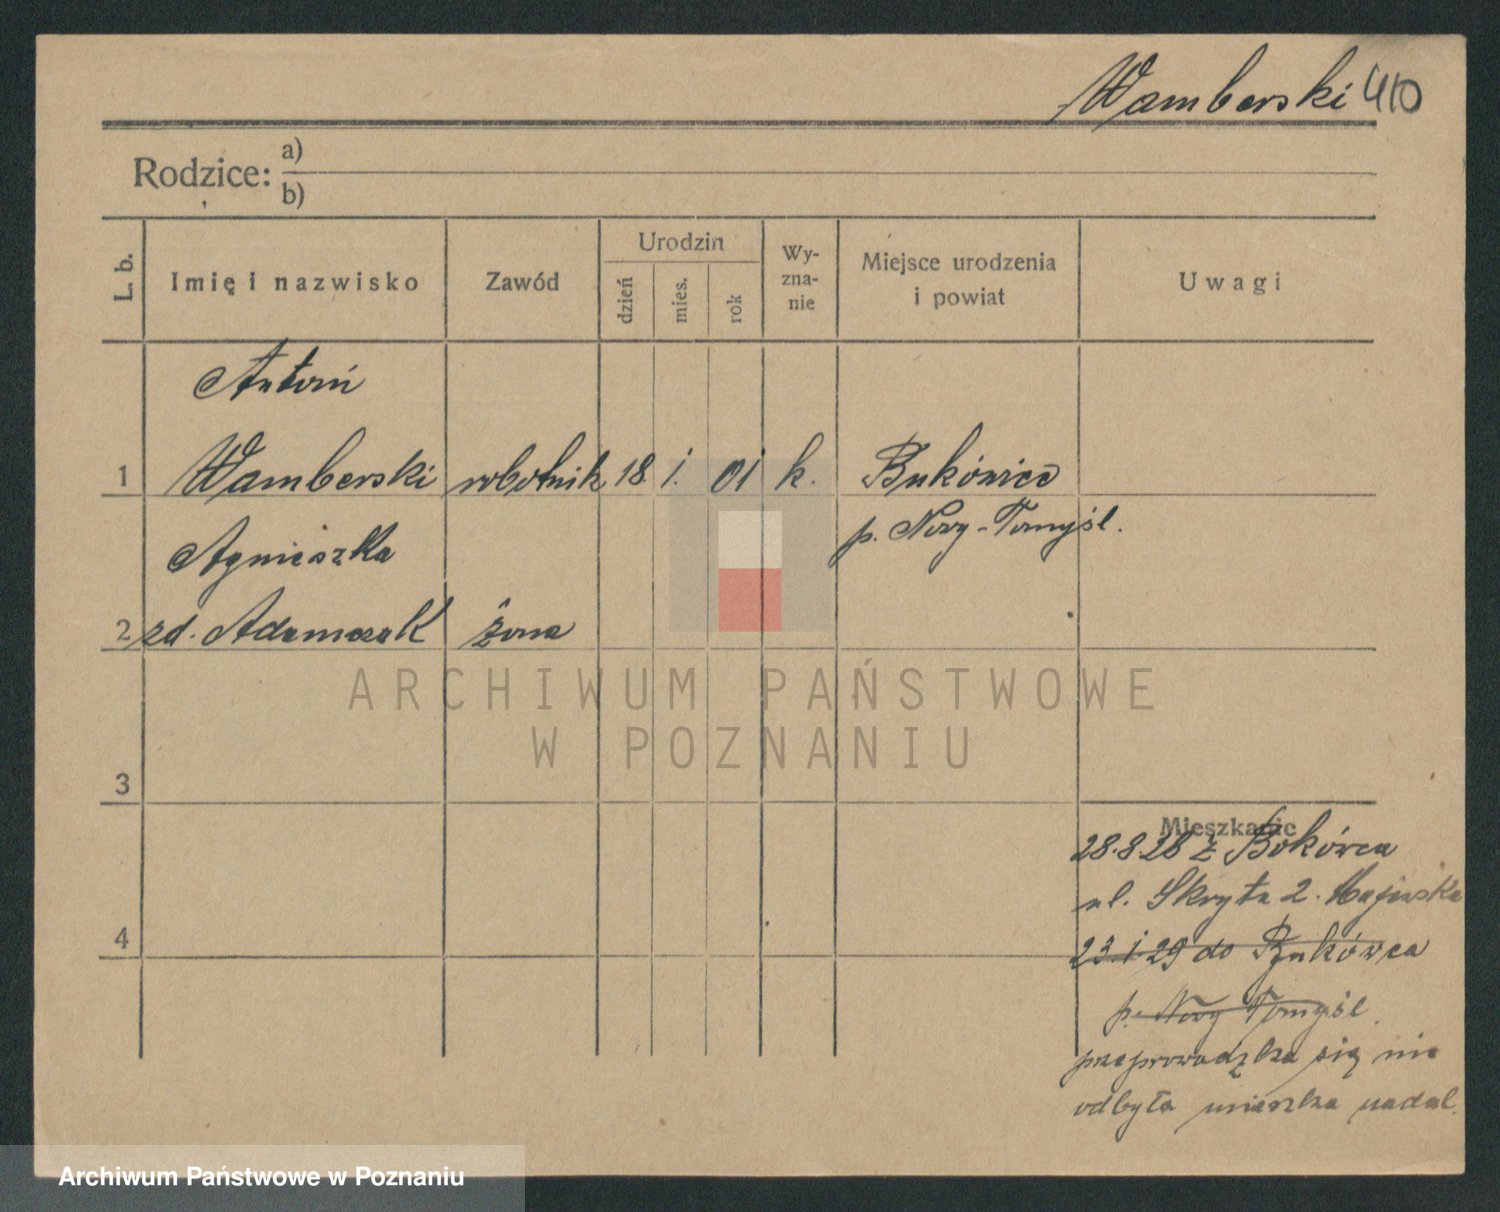 Wamberski 410
Rodzice: a)
b)
L. b.
Imię i nazwisko
Zawód
Urodzin
dzień
mies.
rok
Wy-
zna-
nie
Miejsce urodzenia
i powiat
Uwagi
Antoni
1 Wamberski robotnik 18 1. 01 k. Bukówiec
p. Nowy-Tomyśl.
Agnieszka
2 zd. Adamczak żona
3
Mieszkanie
28.8.28 z Bukówca
ul. Skryta 2. Majewska
4
23.1.29 do Bukówca
p. Nowy Tomyśl
przeprowadzka się nie
odbyła mieszka nadal.
ARCHIWUM PAŃSTWOWE
W POZNANIU
Archiwum Państwowe w Poznaniu